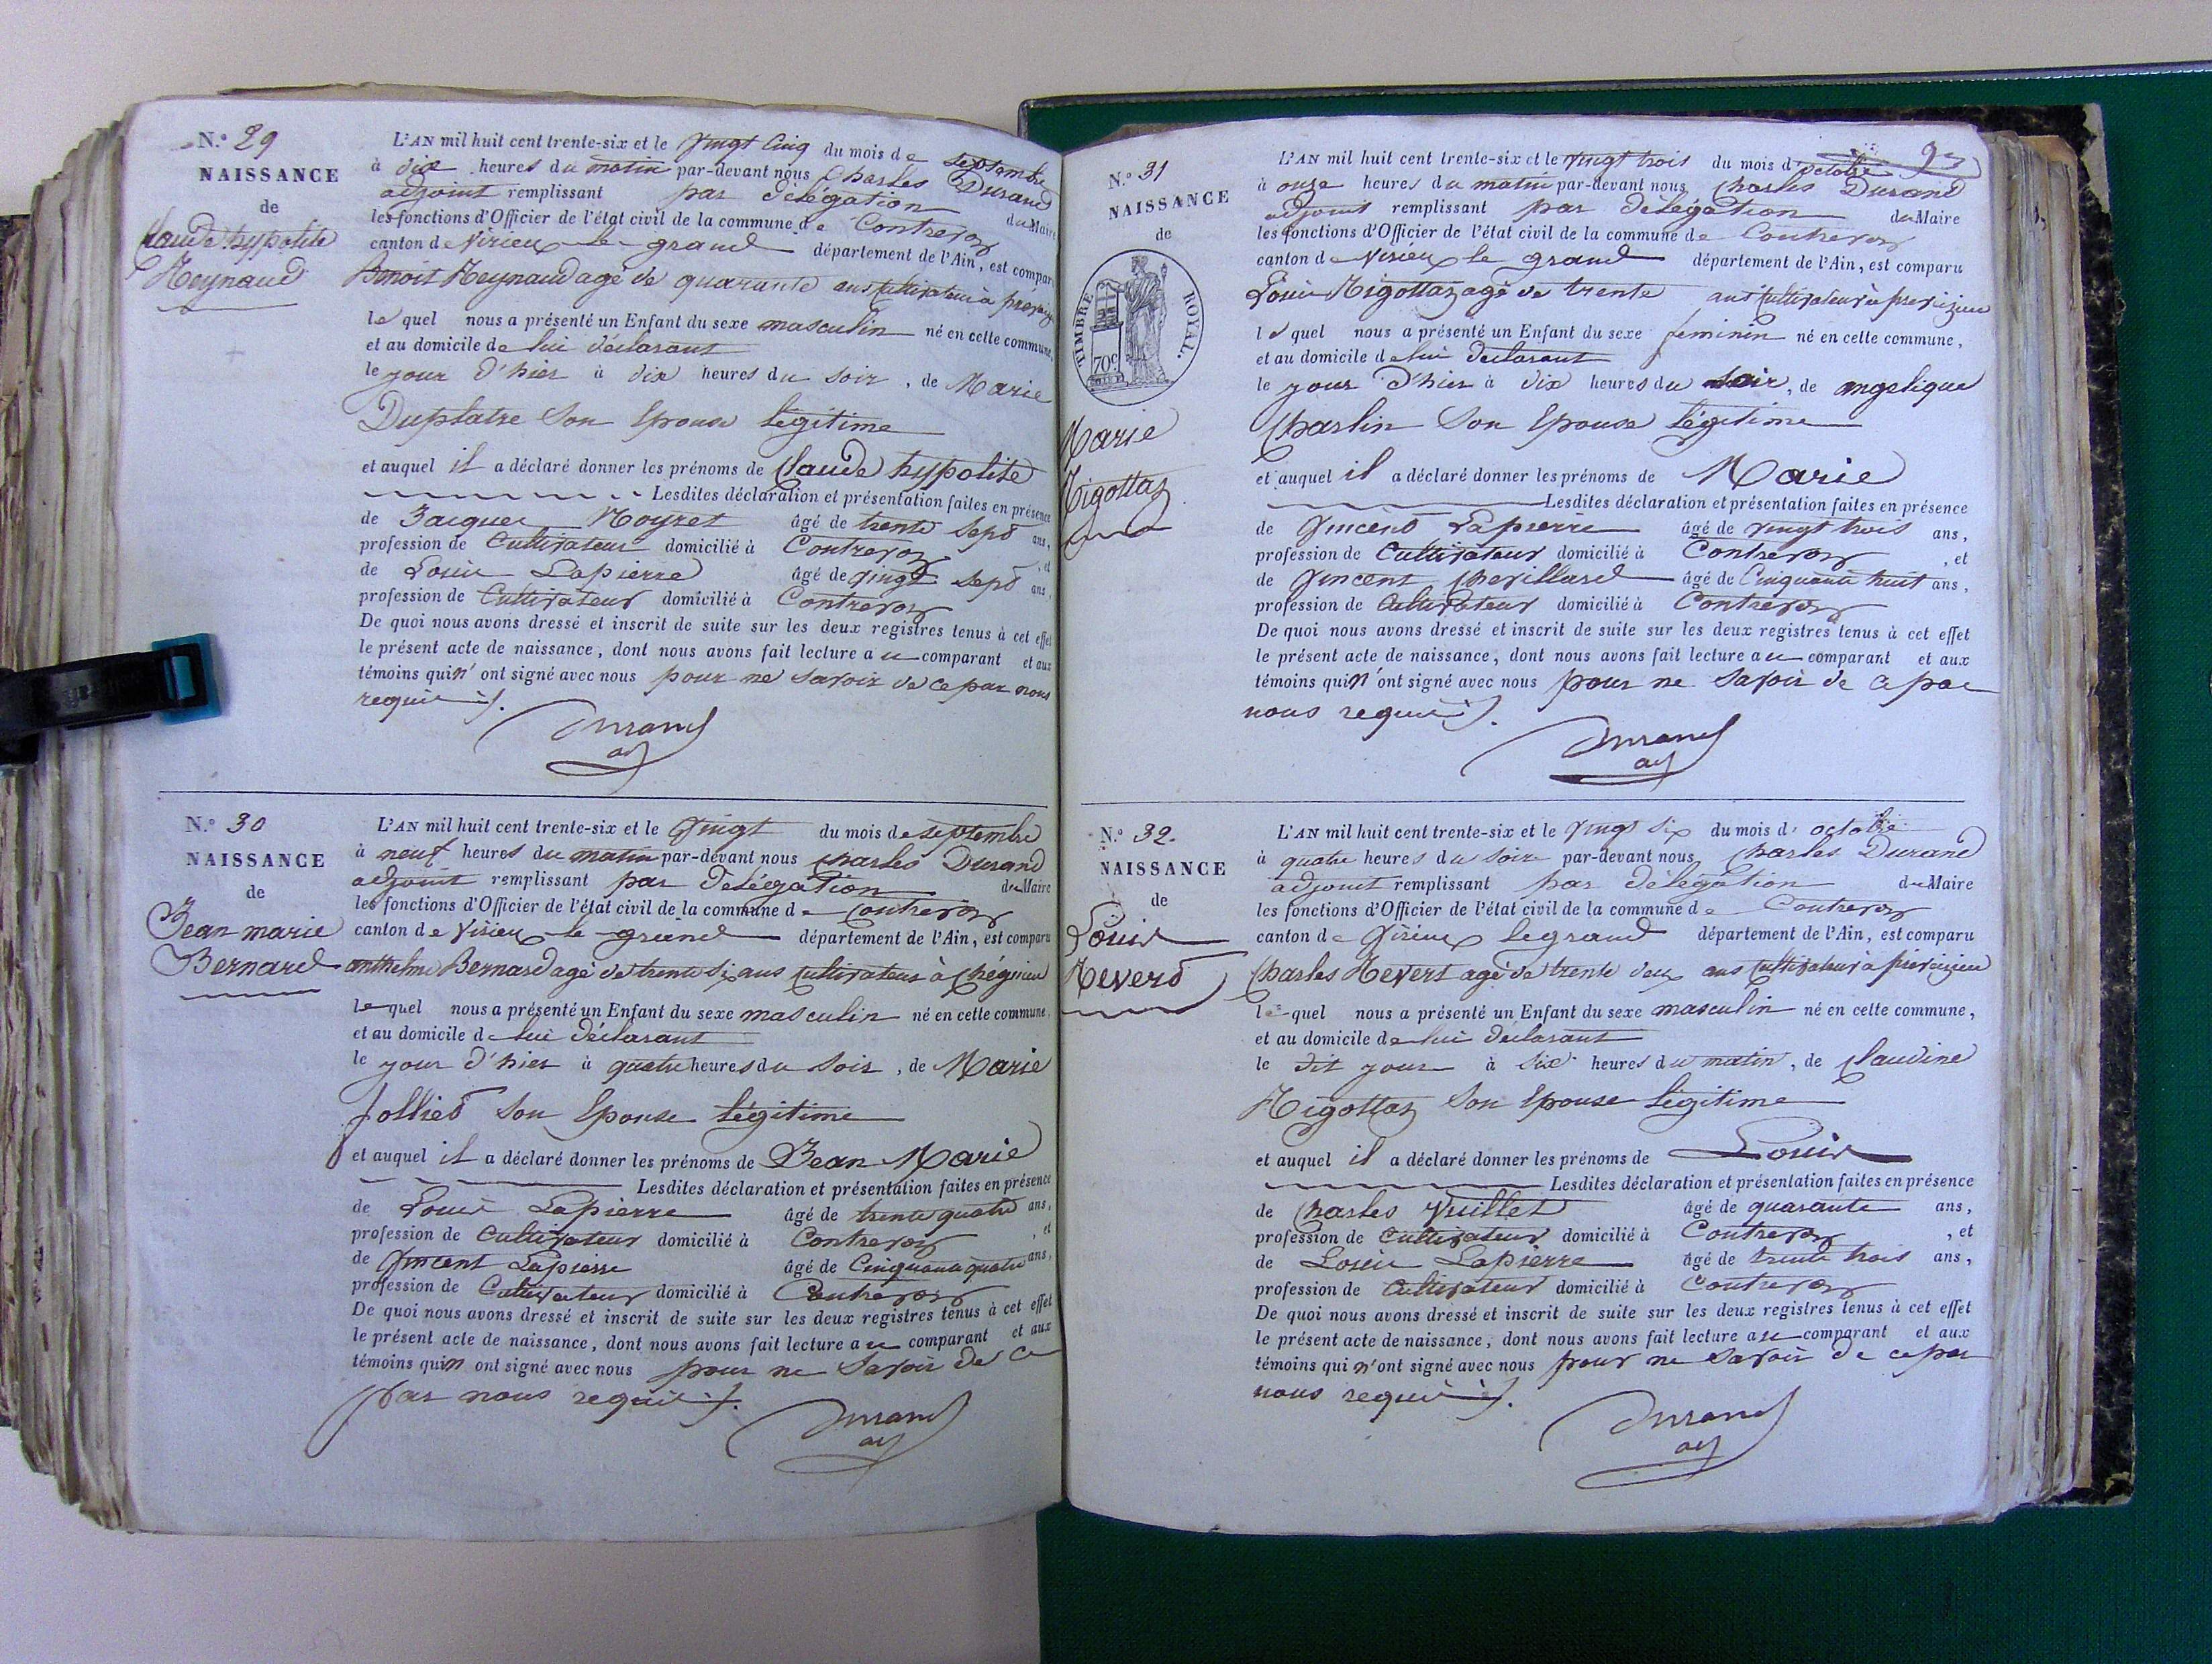 N.° 29
NAISSANCE
de
Claude hypolite
Reynaud
L'AN mil huit cent trente-six et le vingt cinq du mois de septembre
à dix heures du matin par-devant nous Charles Durand
adjoint remplissant par délégation du Maire
les fonctions d'Officier de l'état civil de la commune de Contrevoz
canton de Virieu le grand département de l'Ain, est comparu
Benoit Reynaud agé de quarante ans Cultivateur à
le quel nous a présenté un Enfant du sexe masculin né en cette commune,
et au domicile de lui déclarant
le jour d'hier à dix heures du soir, de Marie
Duplatre Son Epouse légitime
et auquel il a déclaré donner les prénoms de Claude hypolite
Lesdites déclaration et présentation faites en présence
de Jacques Moyret âgé de trente sept ans,
profession de Cultivateur domicilié à Contrevoz, et
de Louis Lapierre âgé de vingt sept ans,
profession de Cultivateur domicilié à Contrevoz
De quoi nous avons dressé et inscrit de suite sur les deux registres tenus à cet effet
le présent acte de naissance, dont nous avons fait lecture au comparant et aux
témoins qui n'ont signé avec nous pour ne savoir de ce par nous
requis ./.
Durand
adj
N.° 30
NAISSANCE
de
Jean marie
Bernard
L'AN mil huit cent trente-six et le Vingt du mois de septembre
à neuf heures du matin par-devant nous Charles Durand
adjoint remplissant par délégation du Maire
les fonctions d'Officier de l'état civil de la commune de Contrevoz
canton de Virieu le grand département de l'Ain, est comparu
anthelme Bernard agé de trente six ans Cultivateur à Chégnieu
le quel nous a présenté un Enfant du sexe masculin né en cette commune,
et au domicile de lui déclarant
le jour d'hier à quatre heures du soir, de Marie
Jolliet Son Epouse légitime
et auquel il a déclaré donner les prénoms de Jean Marie
Lesdites déclaration et présentation faites en présence
de Louis Lapierre âgé de trente quatre ans,
profession de Cultivateur domicilié à Contrevoz, et
de Vincent Lapierre âgé de Cinquante quatre ans,
profession de Cultivateur domicilié à Contrevoz
De quoi nous avons dressé et inscrit de suite sur les deux registres tenus à cet effet
le présent acte de naissance, dont nous avons fait lecture au comparant et aux
témoins qui n ont signé avec nous pour ne Savoir de ce
par nous requis ./.
Durand
adj
N.° 31
NAISSANCE
de
TIMBRE ROYAL.
70c
Marie
Rigottaz
L'AN mil huit cent trente-six et le vingt trois du mois d'octobre
à onze heures du matin par-devant nous Charles Durand
adjoint remplissant par délégation du Maire
les fonctions d'Officier de l'état civil de la commune de Contrevoz
canton de Virieu le grand département de l'Ain, est comparu
Louis Rigottaz agé de trente ans Cultivateur à preveizieu
le quel nous a présenté un Enfant du sexe feminin né en cette commune,
et au domicile de lui déclarant
le jour d'hier à dix heures du soir, de angelique
Charlin Son Epouse légitime
et auquel il a déclaré donner les prénoms de Marie
Lesdites déclaration et présentation faites en présence
de Vincent Lapierre âgé de vingt trois ans,
profession de Cultivateur domicilié à Contrevoz, et
de Vincent Chevillard âgé de Cinquante huit ans,
profession de Cultivateur domicilié à Contrevoz
De quoi nous avons dressé et inscrit de suite sur les deux registres tenus à cet effet
le présent acte de naissance, dont nous avons fait lecture au comparant et aux
témoins qui n'ont signé avec nous pour ne Savoir de ce par
nous requis ./.
Durand
adj
N.° 32
NAISSANCE
de
Louis
Revert
L'AN mil huit cent trente-six et le vingt six du mois d'octobre
à quatre heures du soir par-devant nous Charles Durand
adjoint remplissant par délégation du Maire
les fonctions d'Officier de l'état civil de la commune de Contrevoz
canton de Virieu le grand département de l'Ain, est comparu
Charles Revert agé de trente deux ans Cultivateur à preveizieu
le quel nous a présenté un Enfant du sexe masculin né en cette commune,
et au domicile de lui déclarant
le dit jour à six heures du matin, de Claudine
Rigottaz Son Epouse légitime
et auquel il a déclaré donner les prénoms de Louis
Lesdites déclaration et présentation faites en présence
de Charles Vuillet âgé de quarante ans,
profession de Cultivateur domicilié à Contrevoz, et
de Louis Lapierre âgé de trente trois ans,
profession de Cultivateur domicilié à Contrevoz
De quoi nous avons dressé et inscrit de suite sur les deux registres tenus à cet effet
le présent acte de naissance, dont nous avons fait lecture au comparant et aux
témoins qui n'ont signé avec nous pour ne savoir de ce par
nous requis ./.
Durand
adj